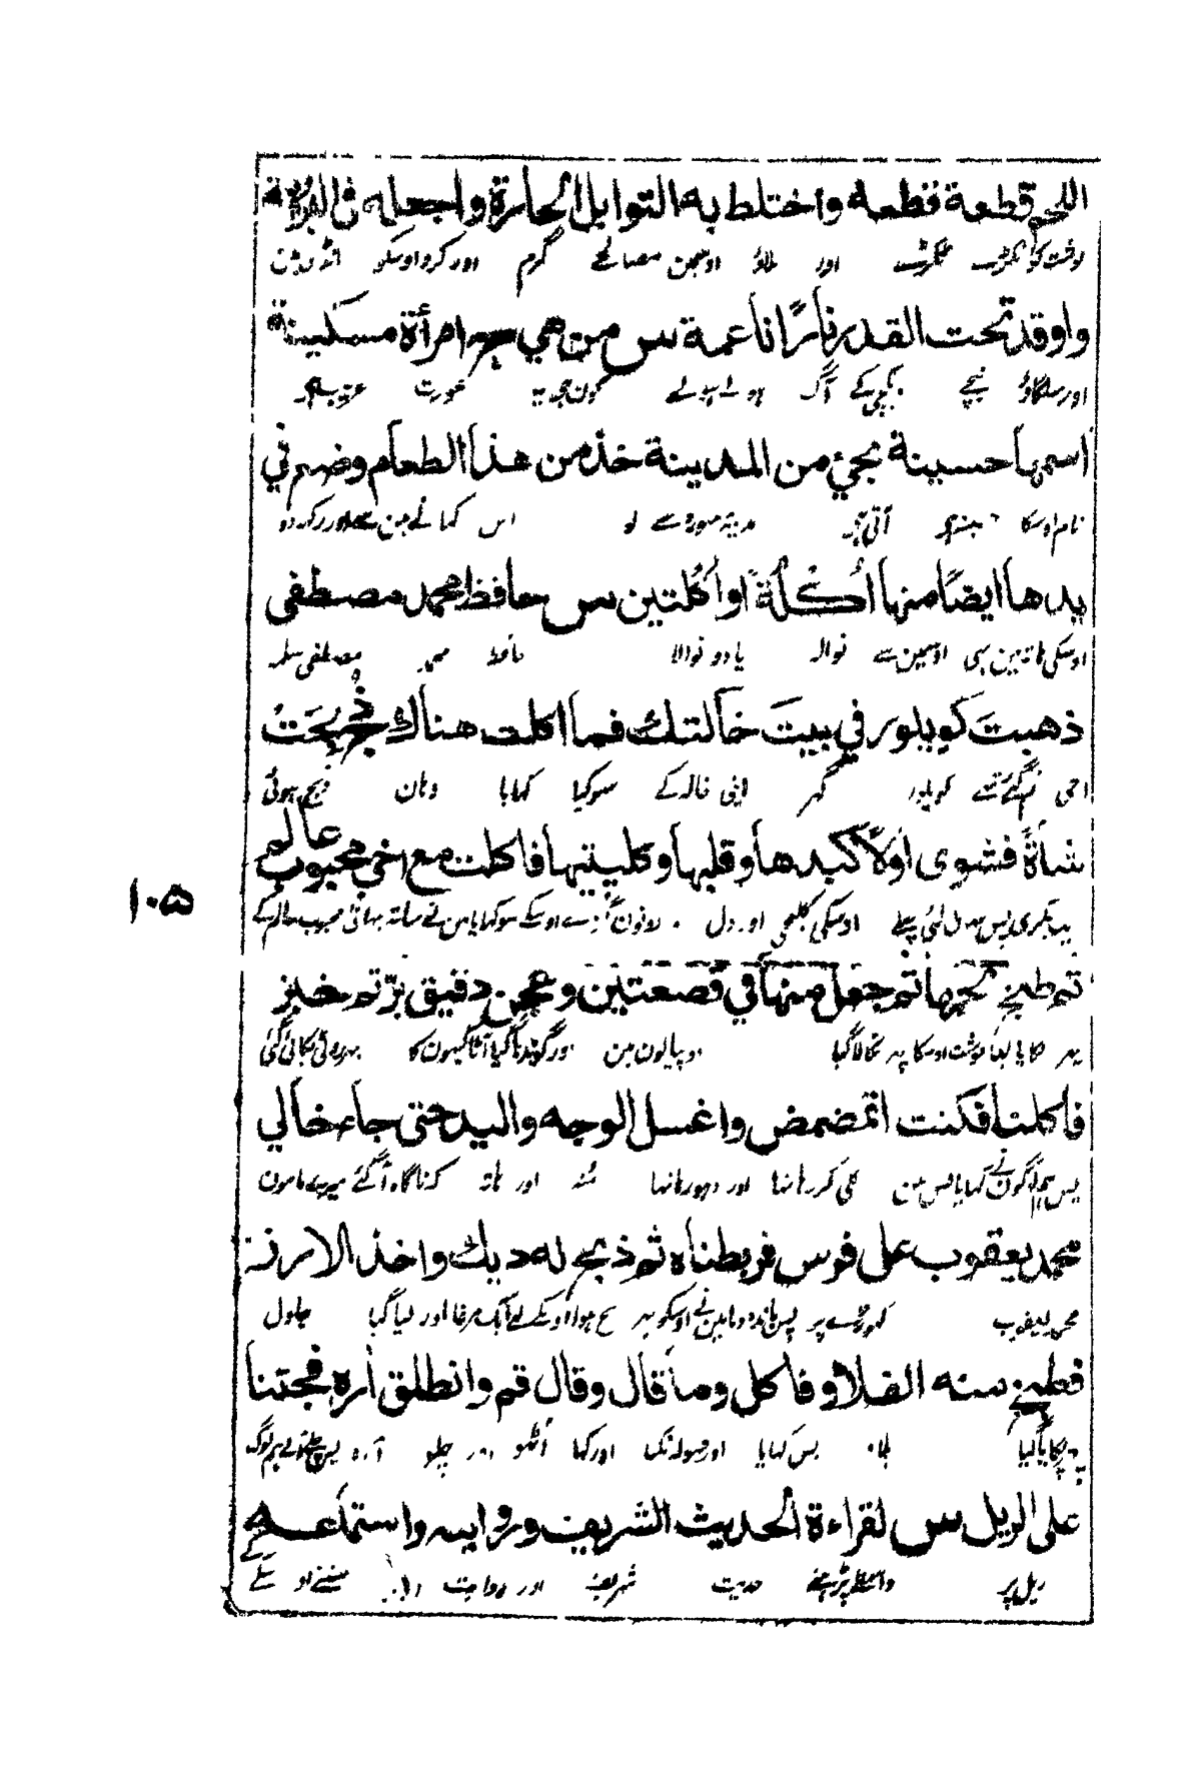 اللحم قطعة قطعة واختلط به التوابل الحارة واجعله في البرمة
گوشت کو ٹکڑے ٹکڑے اور ملاؤ اوسمین مصالحے گرم اور کرو اوسکو
واوقد تحت القدر نارًا ناعمة س من هي ج امرأة مسكينة
اور سلگاؤ نیچے دیگچی کے آگ ہولے ہولے کون ہے یہ عورت غریب ہے
اسمها حسينة تجئ من المدينة خذ من هذا الطعام وضع في
نام اوسکا حسینہ ہے آتی ہے مدینہ منورہ سے لو اس کھانے مین سے اور رکھ دو
يدها ايضًا منها اُكْلَةً او اُكْلتين س حافظ محمد مصطفى
اوسکی ہاتھ مین بھی اوسمین سے نوالہ یا دو نوالا حافظ محمد مصطفی سلمہ
ذهبتَ كويلور في بيتَ خالتك فما اكلت هناك ج ذُبِحَتْ
تم گئے تھے کویلور گھر اپنی خالہ کے سو کیا کھایا وہان ذبح ہوئی
شاةٌ فشوى اولاً كبدها وقلبها وكليتيها فاكلت مع اخي محبوب عالم
بکری پس پہلے اوسکی کلیجی اور دل دونون گردے اوسکے سو کھایا مین نے ساتھ بھائی محبوب عالم کے
ثم طبخ لحمها ثم جعل منها في قصعتين وعجن دقيق برّ ثم خبز
پھر پکایا گیا گوشت اوسکا پھر نکالا گیا دو پیالون مین اور گوندھا گیا آٹا گیہون کا پھر روٹی پکائی گئی
فاكلنا فكنت اتمضمض واغسل الوجه واليد حتى جاء خالي
پس ہم لوگون نے کھایا پس مین کلی کر رہا تھا اور دھو رہا تھا منہ اور ہاتھ کہ ناگاہ آگئے میرے مامون
محمد يعقوب على فرس فربطناه ثم ذبح له ديك واخذ الارز
محمد یعقوب گھوڑے پر پس باندھ دیا مین نے اوسکو پھر ذبح ہوا اوسکے لیے ایک مرغا اور لیا گیا چاول
فطبخ منه الفلاو فاكل وما قال وقال قم وانطلق اره فجئنا
پکایا گیا پلاؤ پس کھایا اور قیلولہ نکیا اور کہا اُٹھو اور چلو آرہ پس چلے آئے ہم لوگ
على الريل س لقراءة الحديث الشريف وروايته واستماعه
ریل پر واسطے پڑھنے حدیث شریف اور روایت سننے اوسکے
١٠٥